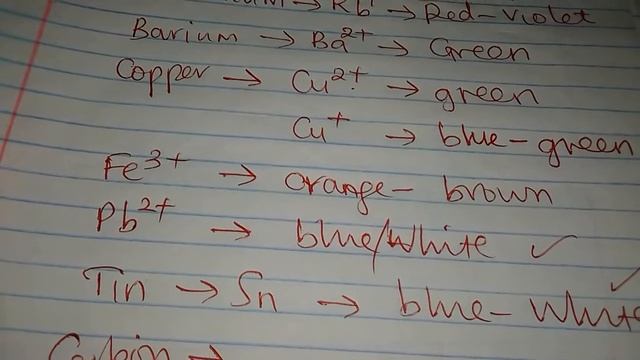 → Rb → Red-Violet
Barium → Ba²⁺ → Green
Copper → Cu²⁺ → green
Cu⁺ → blue-green
Fe³⁺ → orange- brown
Pb²⁺ → blue/White ✓
Tin → Sn → blue- White ✓